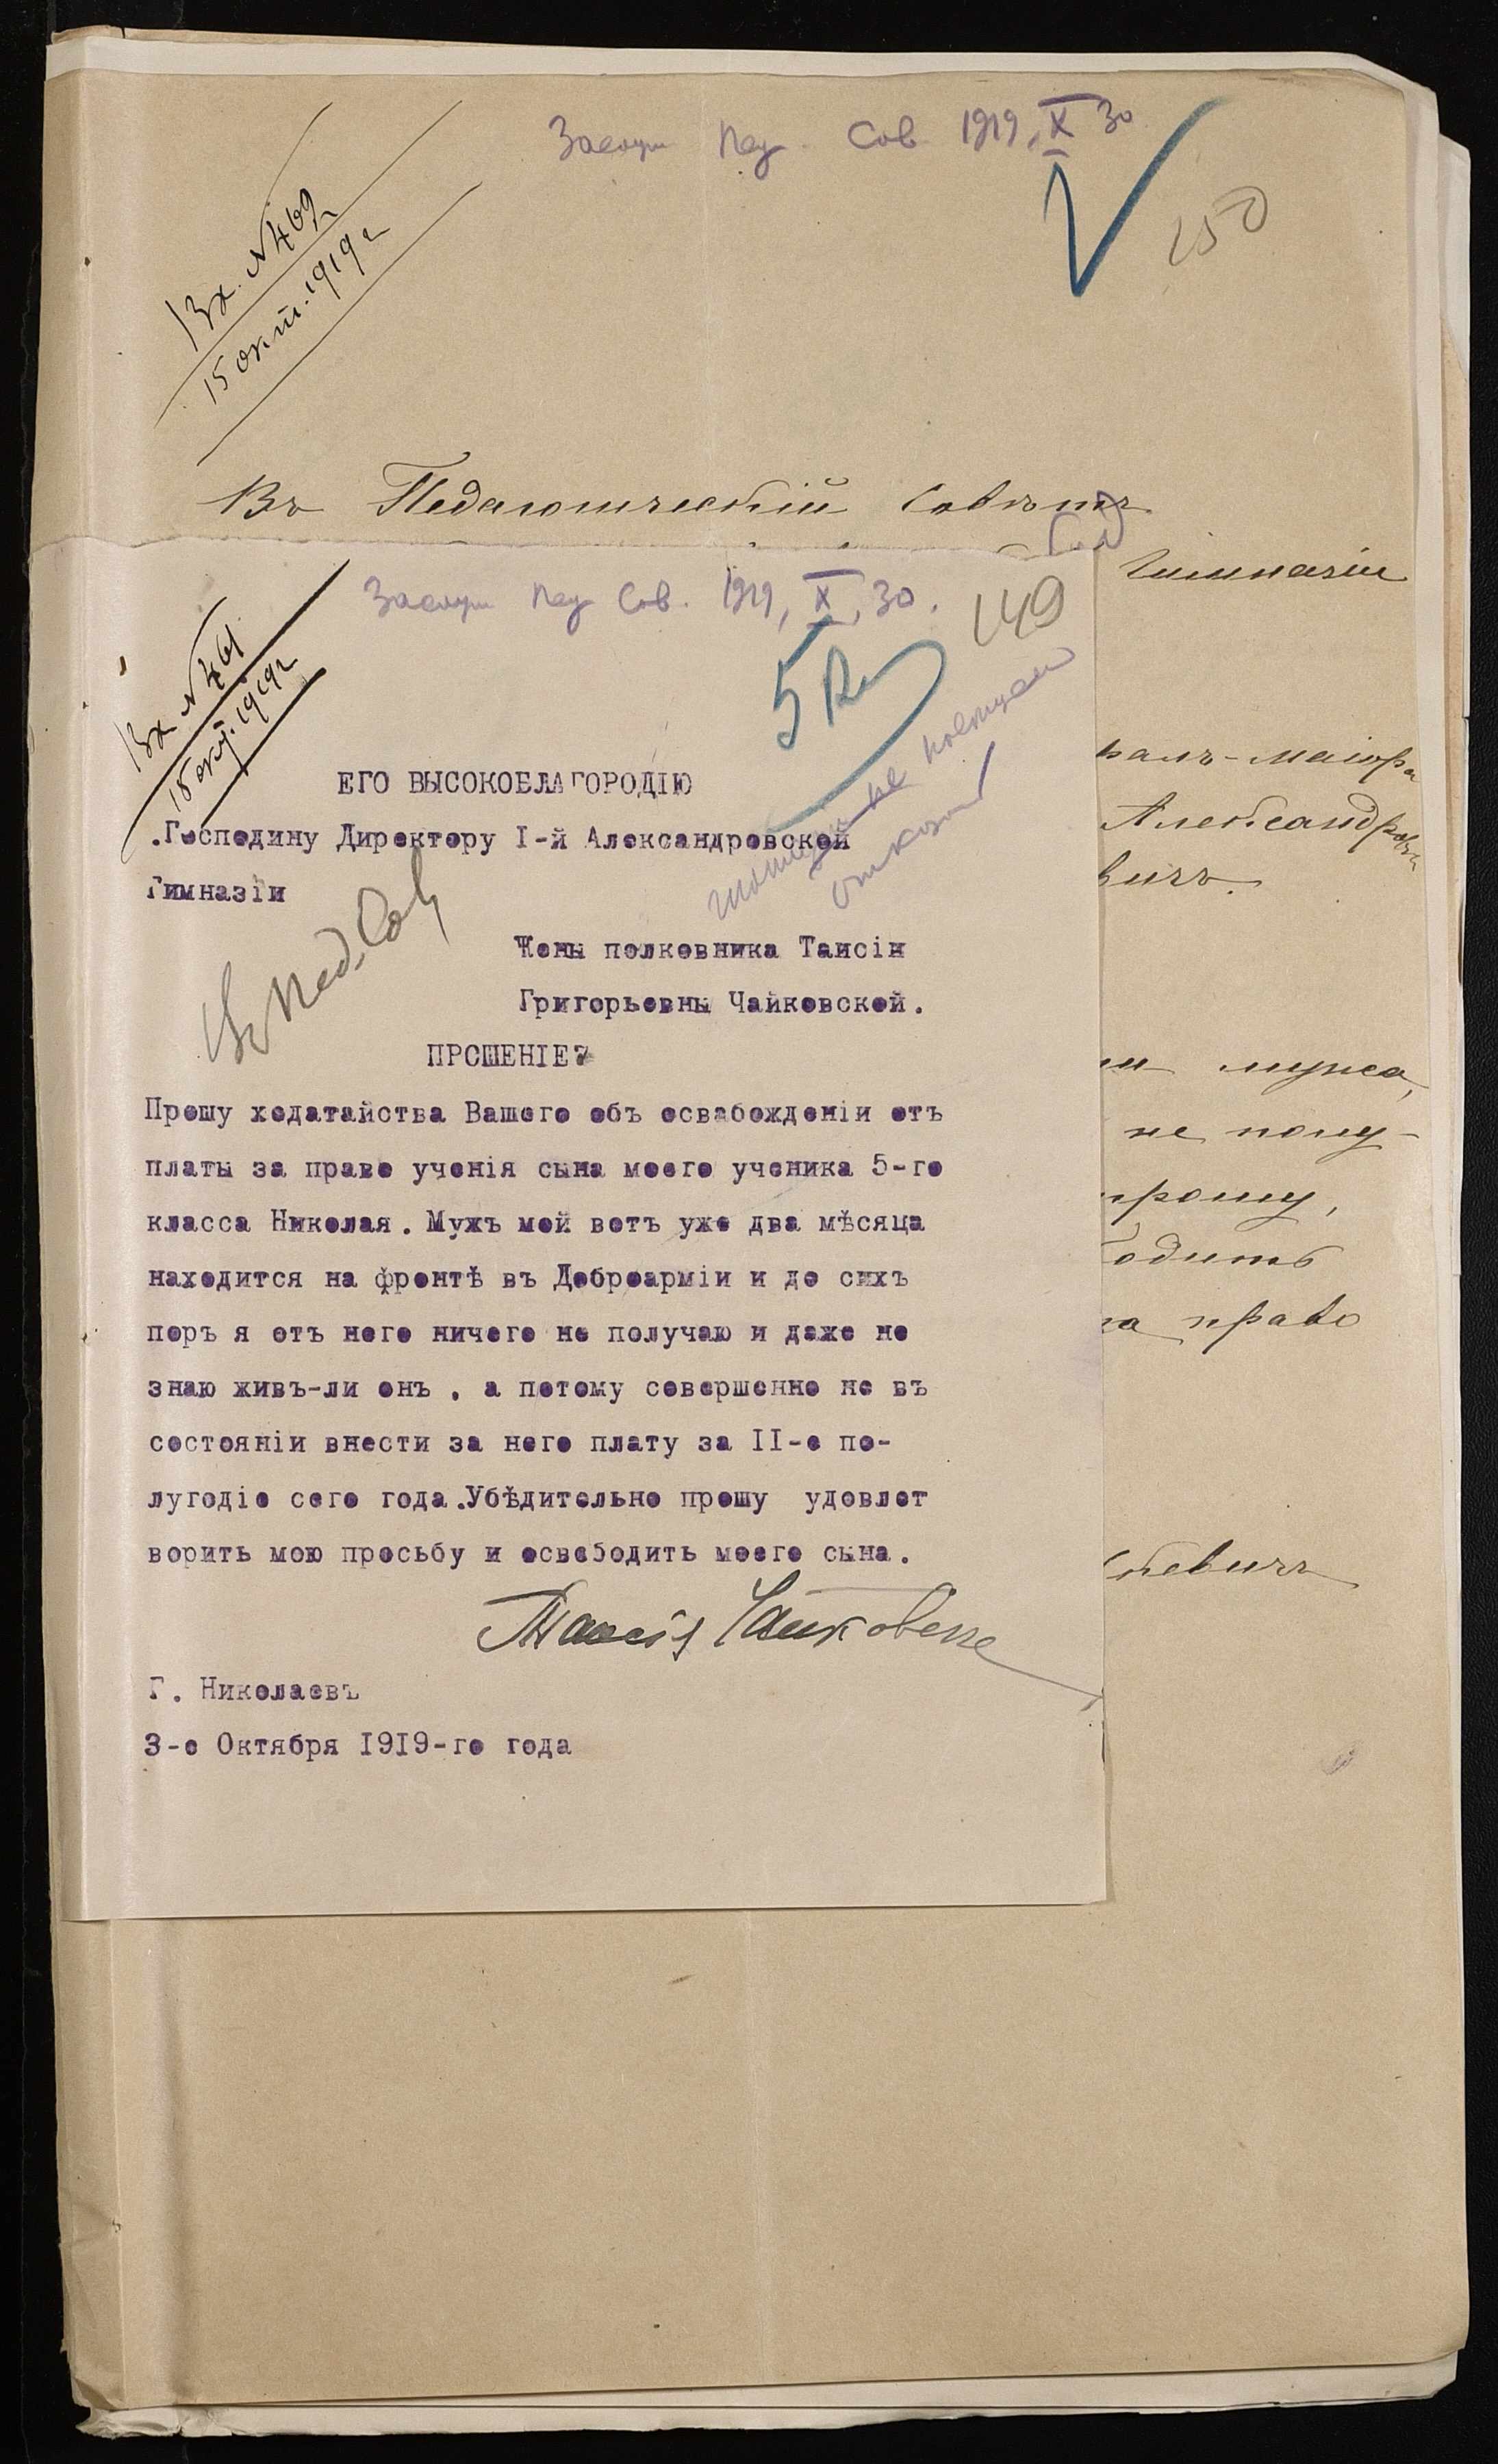 Заслуш Пед. Сов. 1919, X 30
150
Вх. №469
15 окт. 1919 г
Въ Педагогическій Совѣтъ
Гимназіи
ралъ-маіора
Александровны
вичъ.
мужа,
не полу-
прошу,
одить
на право
кевичъ
Заслуш Пед Сов. 1919, X, 30.
149
Вх №461
15 окт. 1919 г
5 кл
не посещает
отказать
ЕГО ВЫСОКОБЛАГОРОДІЮ
.Господину Директору I-й Александровской
Гимназіи
Въ Пед. Сов
Жены полковника Таисіи
Григорьевны Чайковской.
ПРОШЕНІЕ
Прошу ходатайства Вашего объ освабожденіи отъ
платы за право ученія сына моего ученика 5-го
класса Николая. Мужъ мой вотъ уже два мѣсяца
находится на фронтѣ въ Доброарміи и до сихъ
поръ я отъ него ничего не получаю и даже не
знаю живъ-ли онъ , а потому совершенно не въ
состояніи внести за него плату за II-е по-
лугодіе сего года.Убѣдительно прошу удовлет
ворить мою просьбу и освободить моего сына.
Таисія Чайковская
Г. Николаевъ
3-е Октября 1919-го года